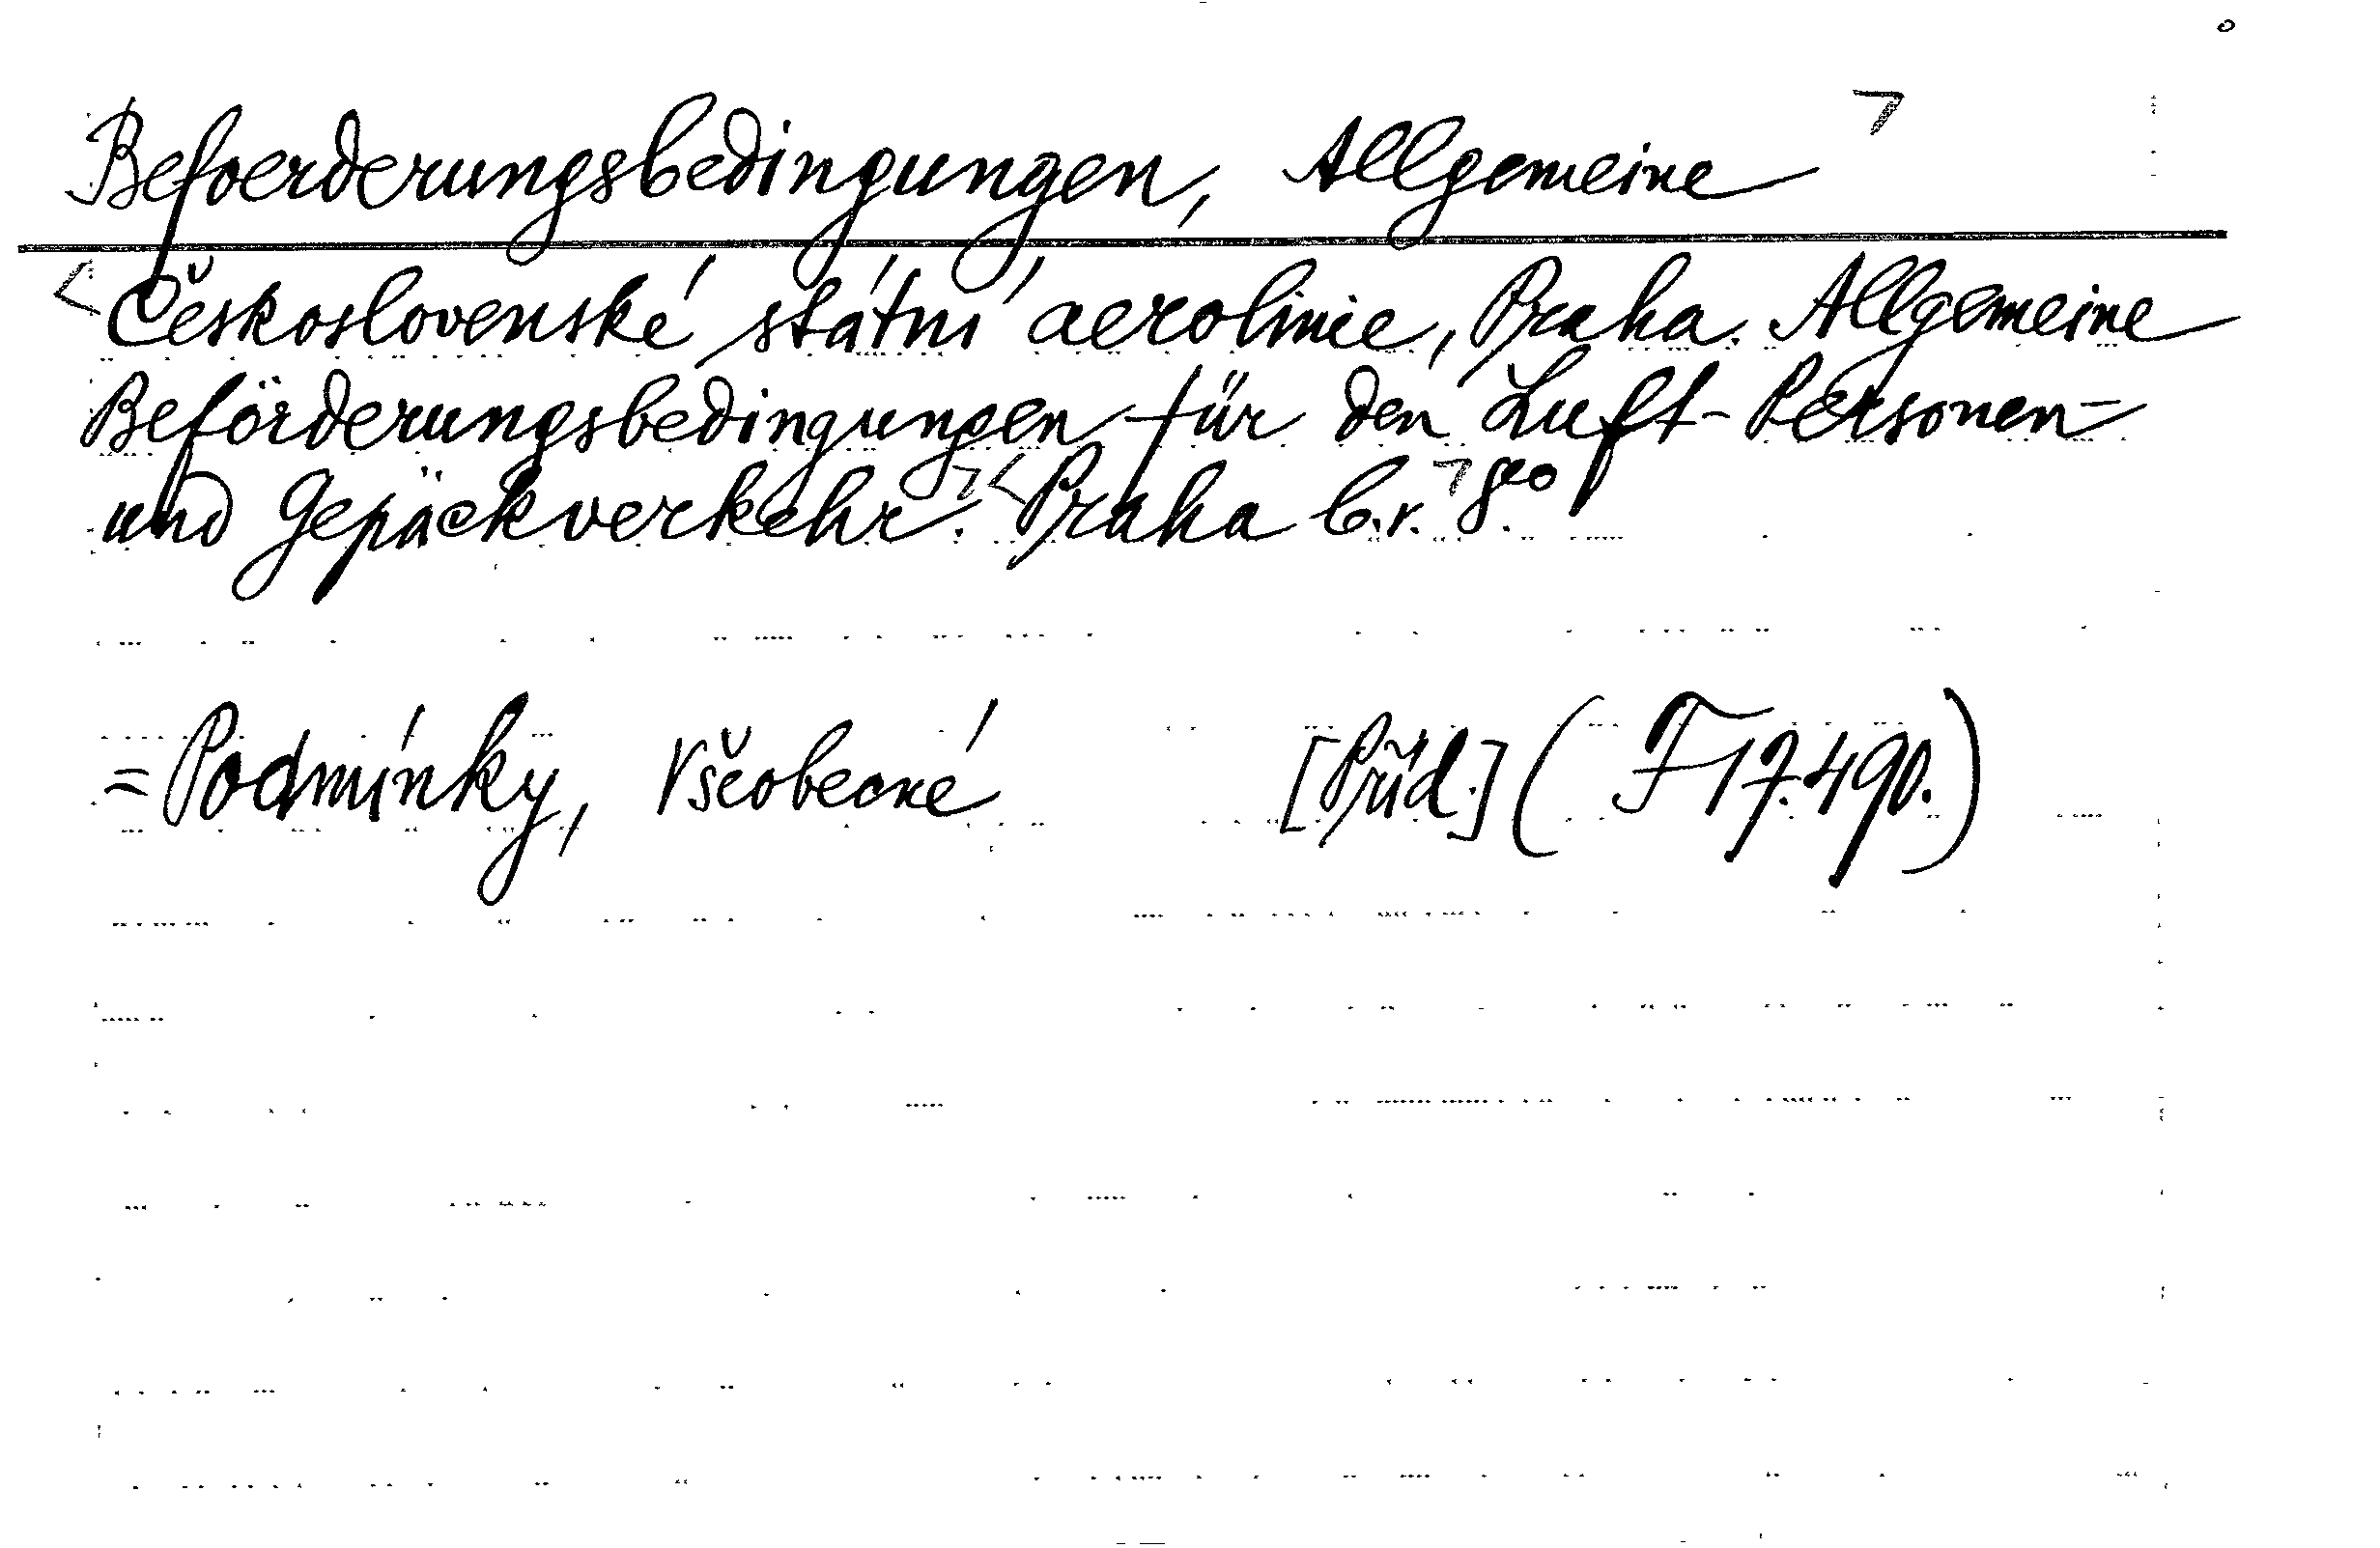 Befoerderungsbedingungen, Allgemeine
Československé státní aerolinie, Praha. Allgemeine
Beförderungsbedingungen für den Luft-Personen-
und Gepäckverkehr. Praha b.r. 8°
= Podmínky, Všeobecné [Příd.] (F 17.490.)